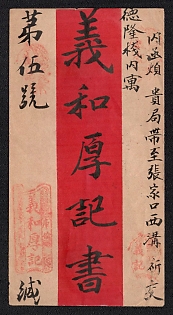 內函煩 貴局帶至張家口西溝 祈交
德隆棧內寓
義和厚記書
第伍號
緘
義和厚記